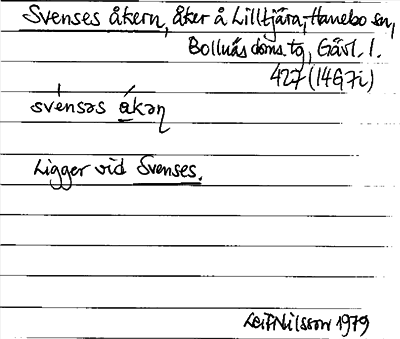 Svenses åkern, åker å Lilltjära, Hanebo sn,
Bollnäs doms. tg, Gävl. l.
427 (14G7i)
svénsəs ákəɳ
Ligger vid Svenses.
Leif Nilsson 1979